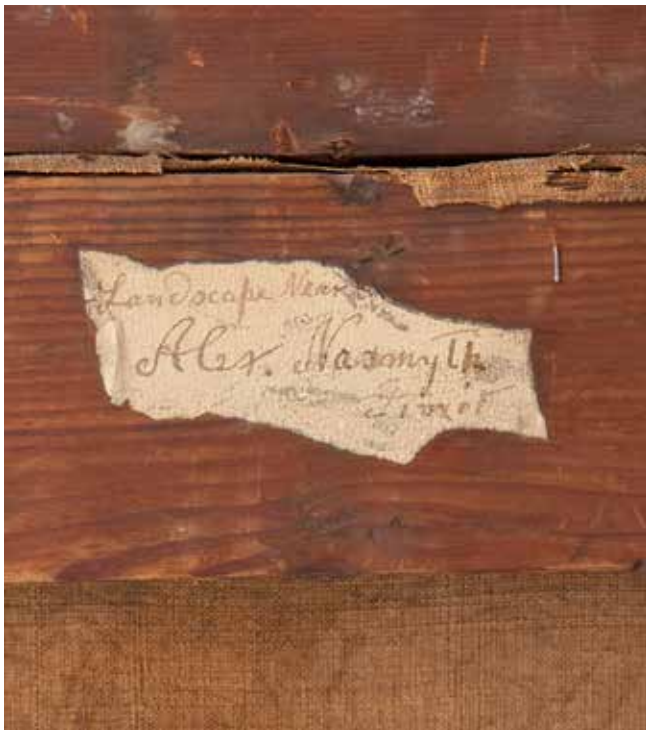 Landscape Near
Alex. Nasmyth
Pinxit